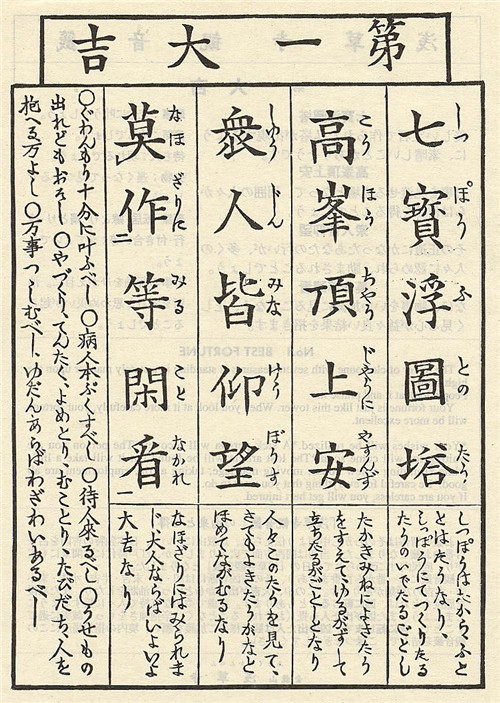 第一大吉
七寶浮圖塔
しつ ぽう ふ との たう
しつぽうはたから、ふと
とはたうなり、
しつぽうにてつくりたる
たうのいでたるごとし
高峯頂上安
こう ほう ちやう じやうに やすんず
たかきみねによきたう
をすえて、ゆるがずして
立ちたるがごとしとなり
衆人皆仰望
しゆう じん みな げう ぼうす
人々このたうを見て、
さてもよきたうかなと
ほめてながむるなり
莫作等閑看
なほざりに みる こと なかれ
なほざりにはみられま
じ大人ならばいよいよ
大吉なり
〇ぐわんもう十分に叶ふべし〇病人本ぷくすべし〇待人來るべし〇うせもの
出れどもおそし〇やづくり、てんたく、よめとり、むことり、たびだち、人を
抱へる万よし〇万事つゝしむべし、ゆだんあらばわざわいあるべし